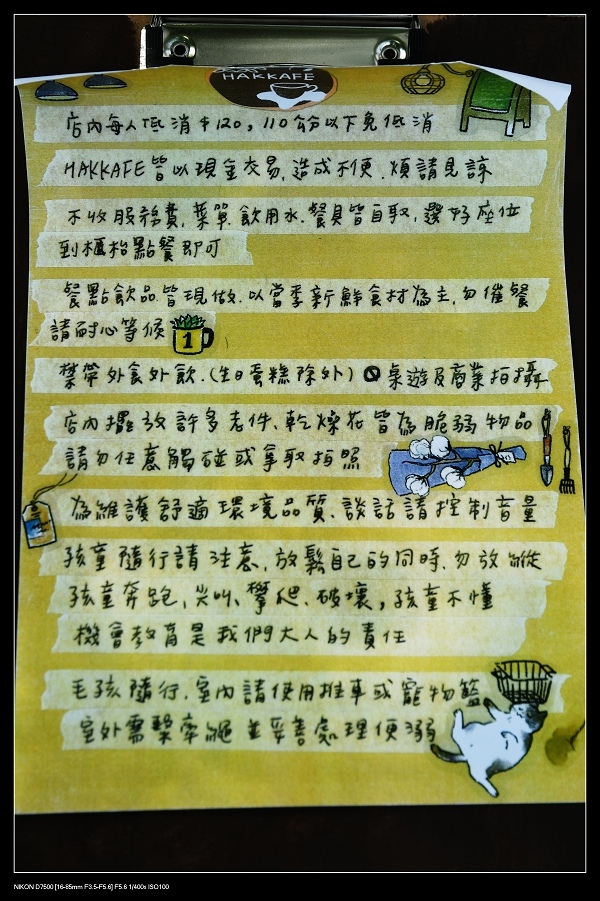 HAKKAFE
店內每人低消$120，110公分以下免低消
HAKKAFE皆以現金交易，造成不便，煩請見諒
不收服務費，菜單、飲用水、餐具皆自取，選好座位
到櫃枱點餐即可
餐點飲品皆現做，以當季新鮮食材為主，勿催餐
請耐心等候
1
禁帶外食外飲，(生日蛋糕除外) 🚫桌遊及商業拍攝
店內擺放許多老件、乾燥花皆為脆弱物品
請勿任意觸碰或拿取拍照
為維護舒適環境品質，談話請控制音量
孩童隨行請注意，放鬆自己的同時，勿放縱
孩童奔跑、尖叫、攀爬、破壞，孩童不懂
機會教育是我們大人的責任
毛孩隨行，室內請使用推車或寵物籃
室外需繫牽繩並妥善處理便溺
NIKON D7500 [16-85mm F3.5-F5.6] F5.6 1/400s ISO100